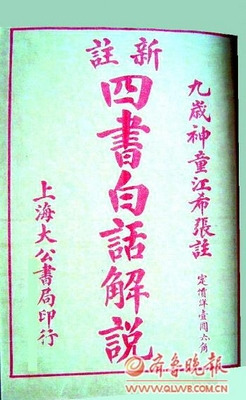 新註
四書白話解說
九歲神童江希張註
定價洋壹圓六角
上海大公書局印行
齊魯晚報
WWW.QLWB.COM.CN